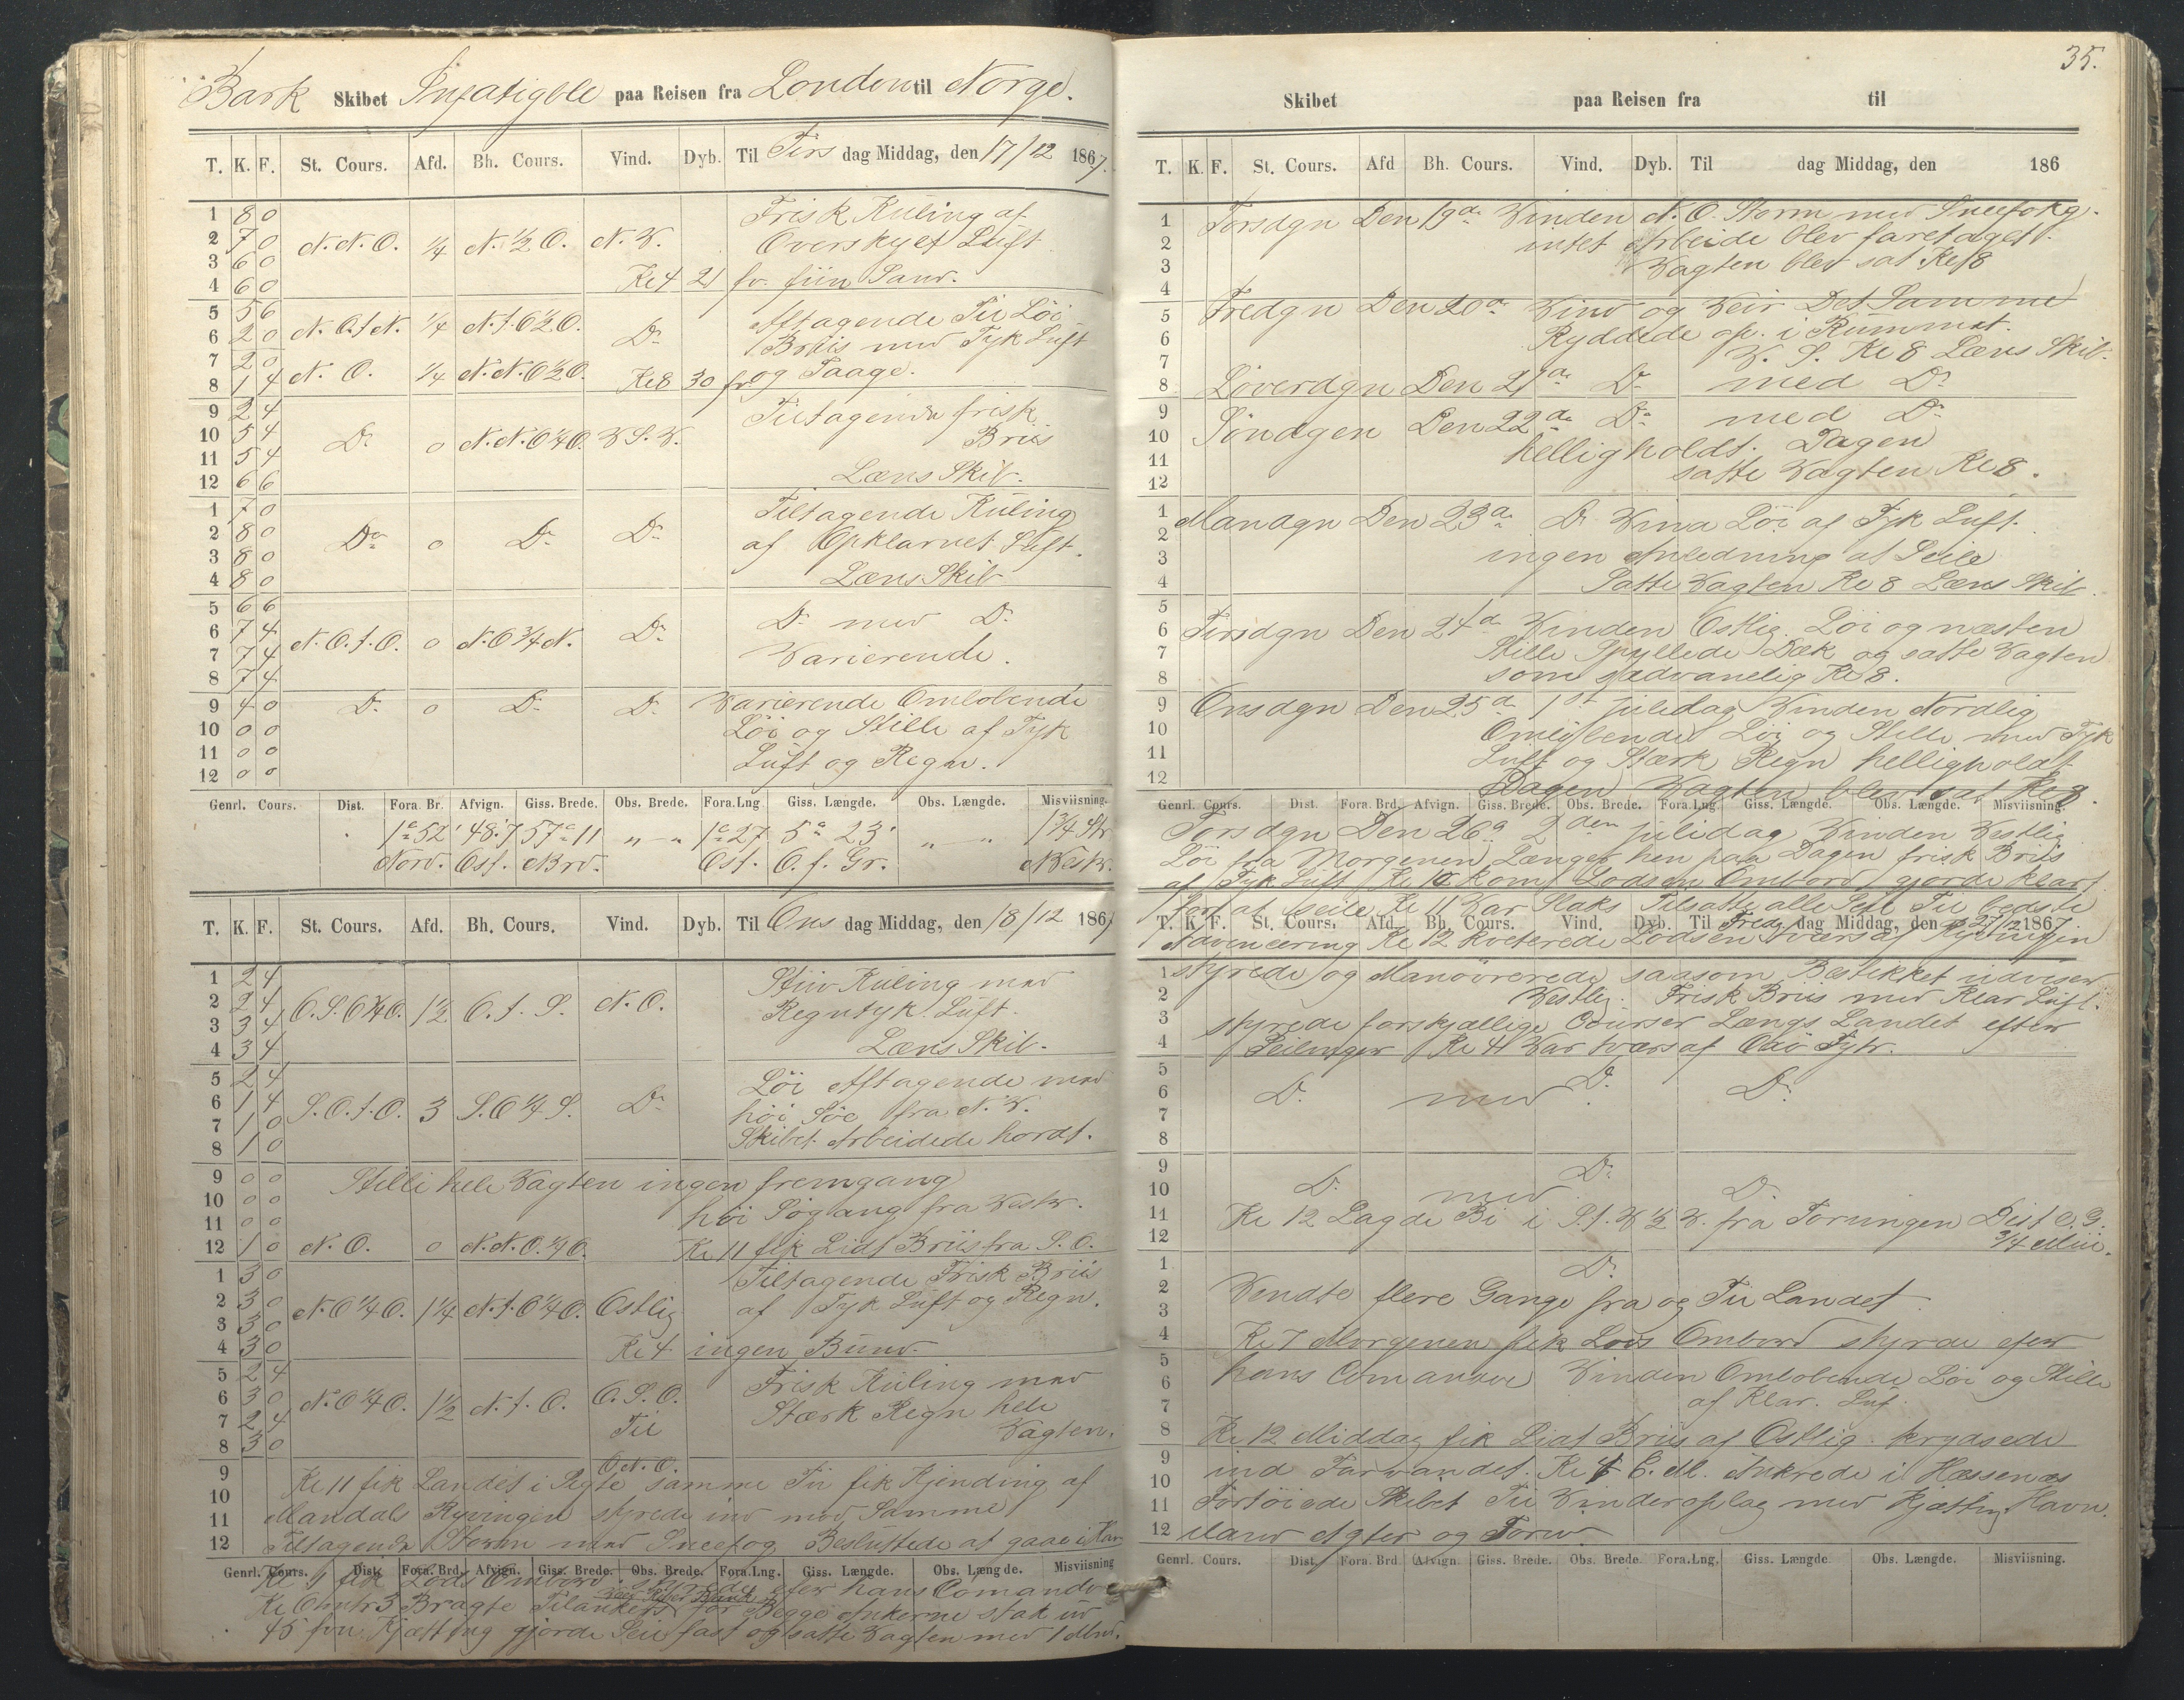 Bark Skibet Infatigble paa Reisen fra London til Norge.
T. K. F. St. Cours. Afd. Bh. Cours. Vind. Dyb. Til Tirs dag Middag, den 17/12 1867.
1 8 0 Frisk Kuling af
2 7 0 N.N.O. 1/4 N. 1/2 O. N.V. Overskyet Luft
3 6 0
4 6 0 Kl 4 21 fv. fiin Sand.
5 5 6 N.O.t.N. 1/4 N.t.O 1/2 O. Do Aftagende Til Löi
6 2 0 Briis med Tyk Luft
7 2 0 N.O. 1/4 N.N.O 1/2 O. og Taage.
8 1 4 Kl 8 30 fv
9 2 4 Tiltagende frisk
10 5 4 Do 0 N.N.O 1/4 O. V.S.V. Briis
11 5 4
12 6 6 Læns Skib.
1 7 0 Tiltagende Kuling
2 8 0 Do 0 Do Do af Opklarnet Luft.
3 8 0
4 8 0 Læns Skib
5 6 6
6 7 4 N.O.t.O. 0 N.O 3/4 N. Do Do med Do
7 7 4 Varierende.
8 7 4
9 4 0 Do 0 Do Do Varierende Omlobende
10 0 0 Löi og Stille af Tyk
11 0 0 Luft og Regn.
12 0 0
Genrl. Cours. Dist. Fora. Br. Afvign. Giss. Brede. Obs. Brede. Fora.Lng Giss. Længde. Obs. Længde. Misviisning.
1° 52' 48.7 57° 11 " - " 1° 27 5° 23' " " 1 3/4 Str
Nord. Ost. Nord. Ost. O. f. Gr. N Vestr.
T. K. F. St. Cours. Afd. Bh. Cours. Vind. Dyb. Til Ons dag Middag, den 18/12 1867
1 2 4 Stiiv Kuling med
2 2 4 O.S.O 1/4 O. 1 1/2 O.t.S. N.O. Regntyk Luft.
3 3 4
4 3 4 Læns Skib.
5 2 4 Löi Aftagende med
6 1 4 S.O.t.O. 3 S.O 1/4 S. Do höi Söe fra N.V.
7 1 0
8 1 0 Skibet Arbeidede hordt.
9 0 0 Stille hele Vagten ingen fremgang
10 0 0 höi Sögang fra Vestr.
11 0 0
12 1 0 N.O. 0 N.N.O. 1/4 O. Kl 11 fik Lidt Briis fra S.O.
1 3 0 Tiltagende Frisk Briis
2 3 0 N.O 1/4 O. 1 1/4 N.t.O 1/4 O. Ostlig af Tyk Luft og Regn.
3 3 0
4 3 0 Kl 4 ingen Bund.
5 2 4 Frisk Kuling med
6 3 0 N.O 1/4 O. 1 1/2 N.t.O. O.S.O. Stærk Regn hele
7 2 4 Til Vagten.
8 3 0 O.N.O.
9 Kl 11 fik Landet i Sigte samme Tid fik Kjending af
10
11 Mandals Ryvingen styrede ind mod Samme
12 Tiltagende Storm med Sneefog Besluttede at gaae i Havn
Genrl. Cours. Dist. Fora. Brd. Afvign. Giss. Brede. Obs. Brede. Fora.Lng. Giss. Længde. Obs. Længde. Misviisning
Kl 1 fik Lods Ombord styrede efter hans Comando
Kl Omtr 3 Bragte Tilankers for Begge Ankerne stak ud
45 fvn Kjætting gjorde Seil fast og satte Vagten med 1 Mnd.
35.
Skibet paa Reisen fra til
T. K. F. St. Cours. Afd Bh. Cours. Vind. Dyb. Til dag Middag, den 186
1 Torsdgn Den 19de Vinden N.O. Storm med Sneefokg.
2 intet Arbeide blev foretaget.
3 Vagten blev sat Kl 8
4
5 Fredgn Den 20de Vind og Veir Det Samme
6 Ryddede op i Rummet.
7 V. S. Kl 8 Læns Skib.
8 Löverdgn Den 21de Do med Do
9 Söndgen Den 22de Do med Do
10 helligholdt Dagen
11 satte Vagten Kl 8.
12
1 Mandgn Den 23de Do Vind Löi af Tyk Luft.
2
3 ingen Anledning at Seile
4 Satte Vagten Kl 8 Læns Skib.
5
6 Tirsdgn Den 24de Vinden Ostlig Löi og næsten
7 Stille Spyllede Dæk og satte Vagten
8 som sædvanelig Kl 8.
9 Onsdgn Den 25de 1st juledag Vinden Nordlig
10 Omlöbende Löi og Stille med Tyk
11 Luft og Stærk Regn helligholdt
12 Dagen Vagten blev sat Kl 8.
Genrl. Cours. Dist. Fora. Brd. Afvign. Giss. Brede. Obs. Brede. Fora.Lng. Giss. Længde. Obs. Længde. Misviisning.
Torsdgn Den 26de 2den juledag Vinden Vestlig
Löi fra Morgenen Længer hen paa Dagen frisk Briis
af Tyk Luft Kl 10 kom Lodsen Ombord gjorde klart
for at Seile Kl 11 Var Slaks Tilsatte alle Seil Til bedste
T. K. F. St. Cours. Afd. Bh. Cours. Vind. Dyb. Til Fre dag Middag, den 27/12 1867
Advencering Kl 12 kviterede Lodsen tværs af Ryvingen
1 styrede og Manövrerede saasom Bestikket udviser
2 Vestlig. Frisk Briis med Klar Luft.
3 styrede forskjællige Courser Langs Landet efter
4 Peilinger Kl 4 Var tværs af Oxö Fyr.
5
6 Do med Do Do
7
8
9
10 Do med Do Do
11 Kl 12 Lagde Bi i S.t.V 1/2 V. fra Torungen Dist c. G.
12 3/4 Miil.
1 Do
2 Vendte flere Gange fra og Til Landet
3
4 Kl 7 Morgenen fik Lods Ombord styrde efter
5 hans Comandoe Vinden Omlobende Löi og Stille
6
7 af Klar. Luf.
8 Kl 12 Middag fik Lidt Briis af Ostlig krydsede
9 ind Farvandet. Kl 4 E. M. Ankrede i Hæssenæs
10
11 Fortöiede Skibet Til Vinderoplag med Kjætting Havn.
12 iland Agter og Forud
Genrl. Cours. Dist. Fora. Brd Afvign. Giss. Brede. Obs. Brede. Fora.Lng. Giss. Længde Obs. Længde. Misviisning.